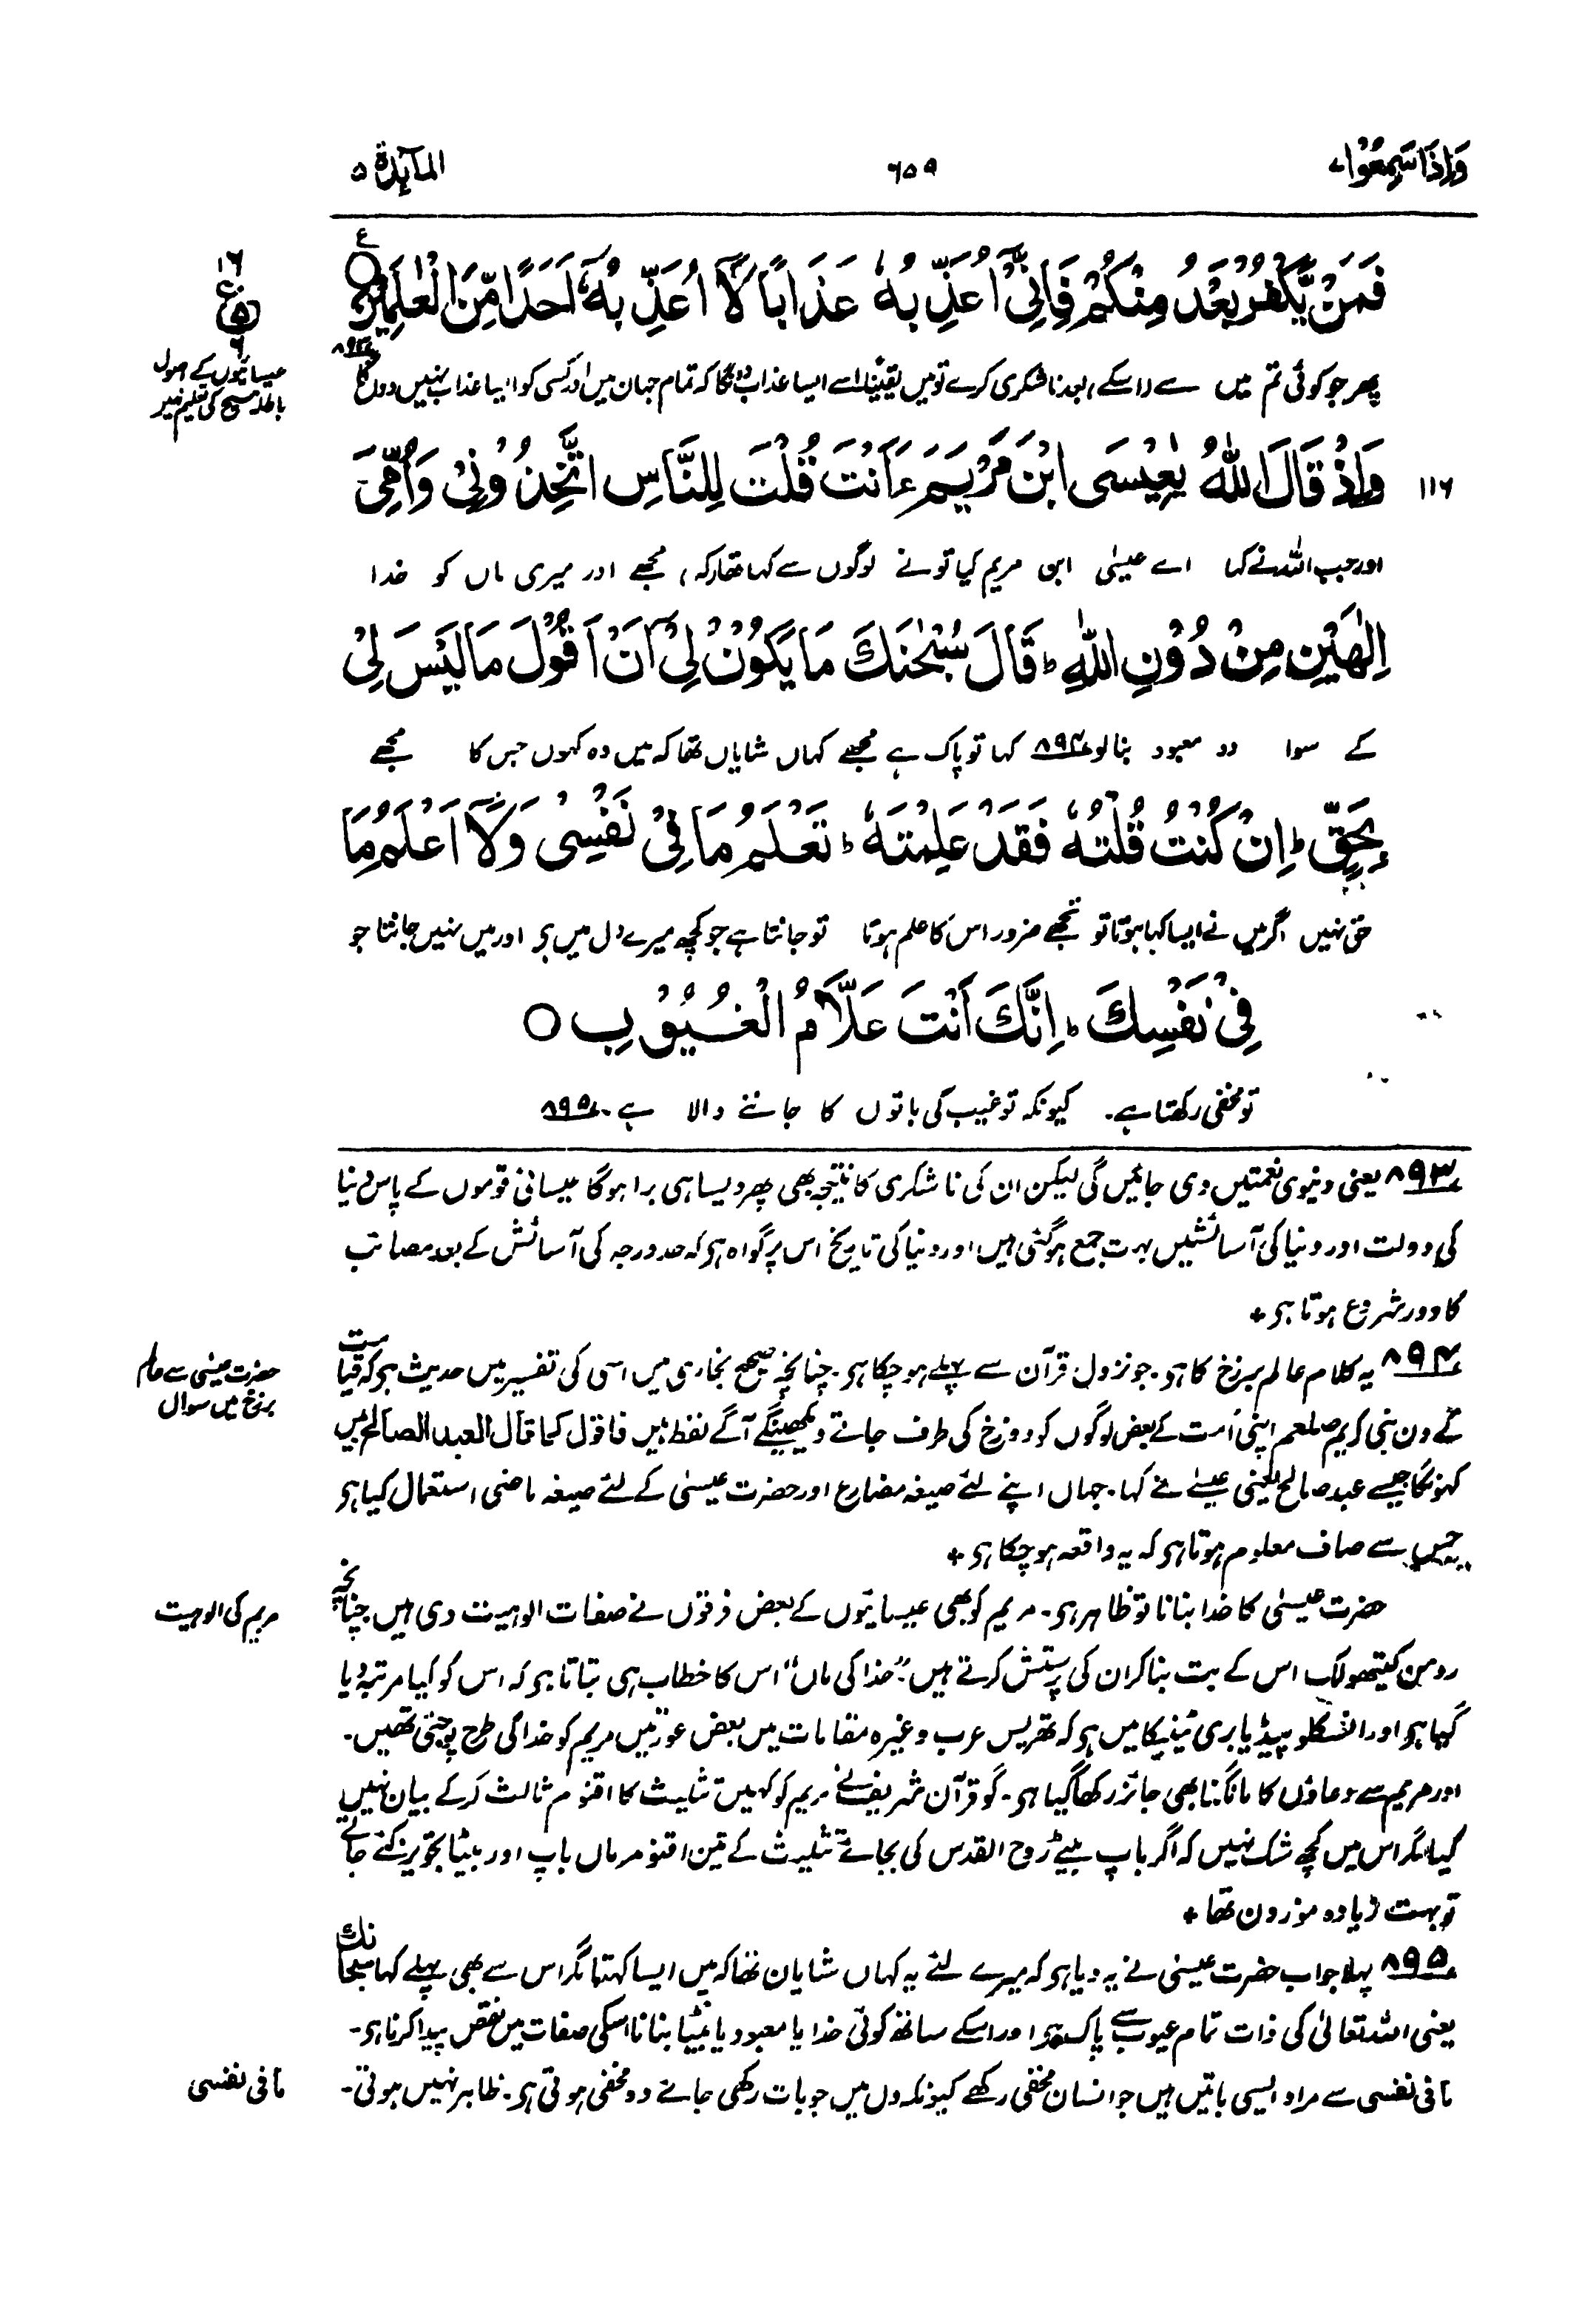 وَاِذَا سَمِعُوْا ۷
۶۵۹
المآئدۃ ۵
فَمَنْ يَّكْفُرْ بَعْدُ مِنْكُمْ فَاِنِّيْٓ اُعَذِّبُهٗ عَذَابًا لَّآ اُعَذِّبُهٗٓ اَحَدًا مِّنَ الْعٰلَمِيْنَ ○
۱۶
ع
۵
۶
عیسائیوں کے اصول باطلہ مسیح کی تعلیم نہیں
پھر جو کوئی تم میں سے (اسکے) بعد ناشکری کرے تو میں یقینًا اسے ایسا عذاب دونگا کہ تمام جہان میں اور کسی کو ایسا عذاب نہیں دوں گا ۸۹۳
۱۱۶ وَاِذْ قَالَ اللّٰهُ يٰعِيْسَى ابْنَ مَرْيَمَ ءَاَنْتَ قُلْتَ لِلنَّاسِ اتَّخِذُوْنِيْ وَاُمِّيَ
اور جب اللہ نے کہا اے عیسٰی ابن مریم کیا تو نے لوگوں سے کہا تھا (کہ) مجھے اور میری ماں کو خدا
اِلٰهَيْنِ مِنْ دُوْنِ اللّٰهِ ؕ قَالَ سُبْحٰنَكَ مَا يَكُوْنُ لِيْٓ اَنْ اَقُوْلَ مَا لَيْسَ لِيْ
کے سوا دو معبود بنا لو ۸۹۴ کہا تو پاک ہے مجھے کہاں شایاں تھا کہ میں وہ کہوں جس کا مجھے
بِحَقٍّ ؕ اِنْ كُنْتُ قُلْتُهٗ فَقَدْ عَلِمْتَهٗ ؕ تَعْلَمُ مَا فِيْ نَفْسِيْ وَلَآ اَعْلَمُ مَا
حق نہیں اگر میں نے ایسا کہا ہوتا تو تجھے ضرور اس کا علم ہوتا تو جانتا ہے جو کچھ میرے دل میں ہر اور میں نہیں جانتا جو
فِيْ نَفْسِكَ ؕ اِنَّكَ اَنْتَ عَلَّامُ الْغُيُوْبِ ○
تو مخفی رکھتا ہے۔ کیونکہ تو غیب کی باتوں کا جاننے والا ہے۔ ۸۹۵
۸۹۳ یعنی دنیوی نعمتیں دی جائیں گی لیکن ان کی ناشکری کا نتیجہ بھی پھر ویسا ہی برا ہوگا عیسائی قوموں کے پاس دنیا
کی دولت اور دنیا کی آسائشیں بہت جمع ہوگئی ہیں اور دنیا کی تاریخ اس پر گواہ ہر کہ حد درجہ کی آسائش کے بعد مصائب
کا دور شروع ہوتا ہر +
۸۹۴ یہ کلام عالم برزخ کا ہر۔ جو نزول قرآن سے پہلے ہو چکا ہر۔ چنانچہ صحیح بخاری میں اسی کی تفسیر میں حدیث ہر کہ قیامت
حضرت عیسٰی سے عالم برزخ میں سوال
کے دن نبی کریم صلعم اپنی اُمت کے بعض لوگوں کو دوزخ کی طرف جاتے دیکھینگے آگے لفظ ہیں فاقول کما قال العبد الصالح میں
کہونگا جیسے عبد صالح یعنی عیسٰے نے کہا۔ جہاں اپنے لئے صیغہ مضارع اور حضرت عیسٰی کے لئے صیغہ ماضی استعمال کیا ہر
جس سے صاف معلوم ہوتا ہر کہ یہ واقعہ ہو چکا ہر +
حضرت عیسٰی کا خدا بنانا تو ظاہر ہر۔ مریم کو بھی عیسائیوں کے بعض فرقوں نے صفات الوہیت دی ہیں چنانچہ
مریم کی الوہیت
رومن کیتھولک اس کے بت بنا کر ان کی پرستش کرتے ہیں۔ "خدا کی ماں" اس کا خطاب ہی بتاتا ہر کہ اس کو کیا مرتبہ دیا
گیا ہر اور انسکلو پیڈیا بری ٹینیکا میں ہر کہ تھریس عرب وغیرہ مقامات میں بعض عورتیں مریم کو خدا کی طرح پوجتی تھیں۔
اور مریم سے دعاؤں کا مانگنا بھی جائز رکھا گیا ہر۔ گو قرآن شریف نے مریم کو کہیں تثلیث کا اقنوم ثالث کرکے بیان نہیں
کیا مگر اس میں کچھ شک نہیں کہ اگر باپ بیٹے روح القدس کی بجائے تثلیث کے تین اقنوم ماں باپ اور بیٹا تجویز کئے جاتے
تو بہت زیادہ موزون تھا +
۸۹۵ پہلا جواب حضرت عیسٰی نے یہ دیا ہر کہ میرے لئے یہ کہاں شایان تھا کہ میں ایسا کہتا مگر اس سے بھی پہلے کہا سبحانک
یعنی اللہ تعالٰی کی ذات تمام عیوب سے پاک ہر اور اسکے ساتھ کوئی خدا یا معبود یا بیٹا بنانا اسکی صفات میں نقص پیدا کرنا ہر۔
ما فی نفسی سے مراد ایسی باتیں ہیں جو انسان مخفی رکھے کیونکہ دل میں جو بات رکھی جائے وہ مخفی ہوتی ہر۔ ظاہر نہیں ہوتی۔
ما فی نفسی